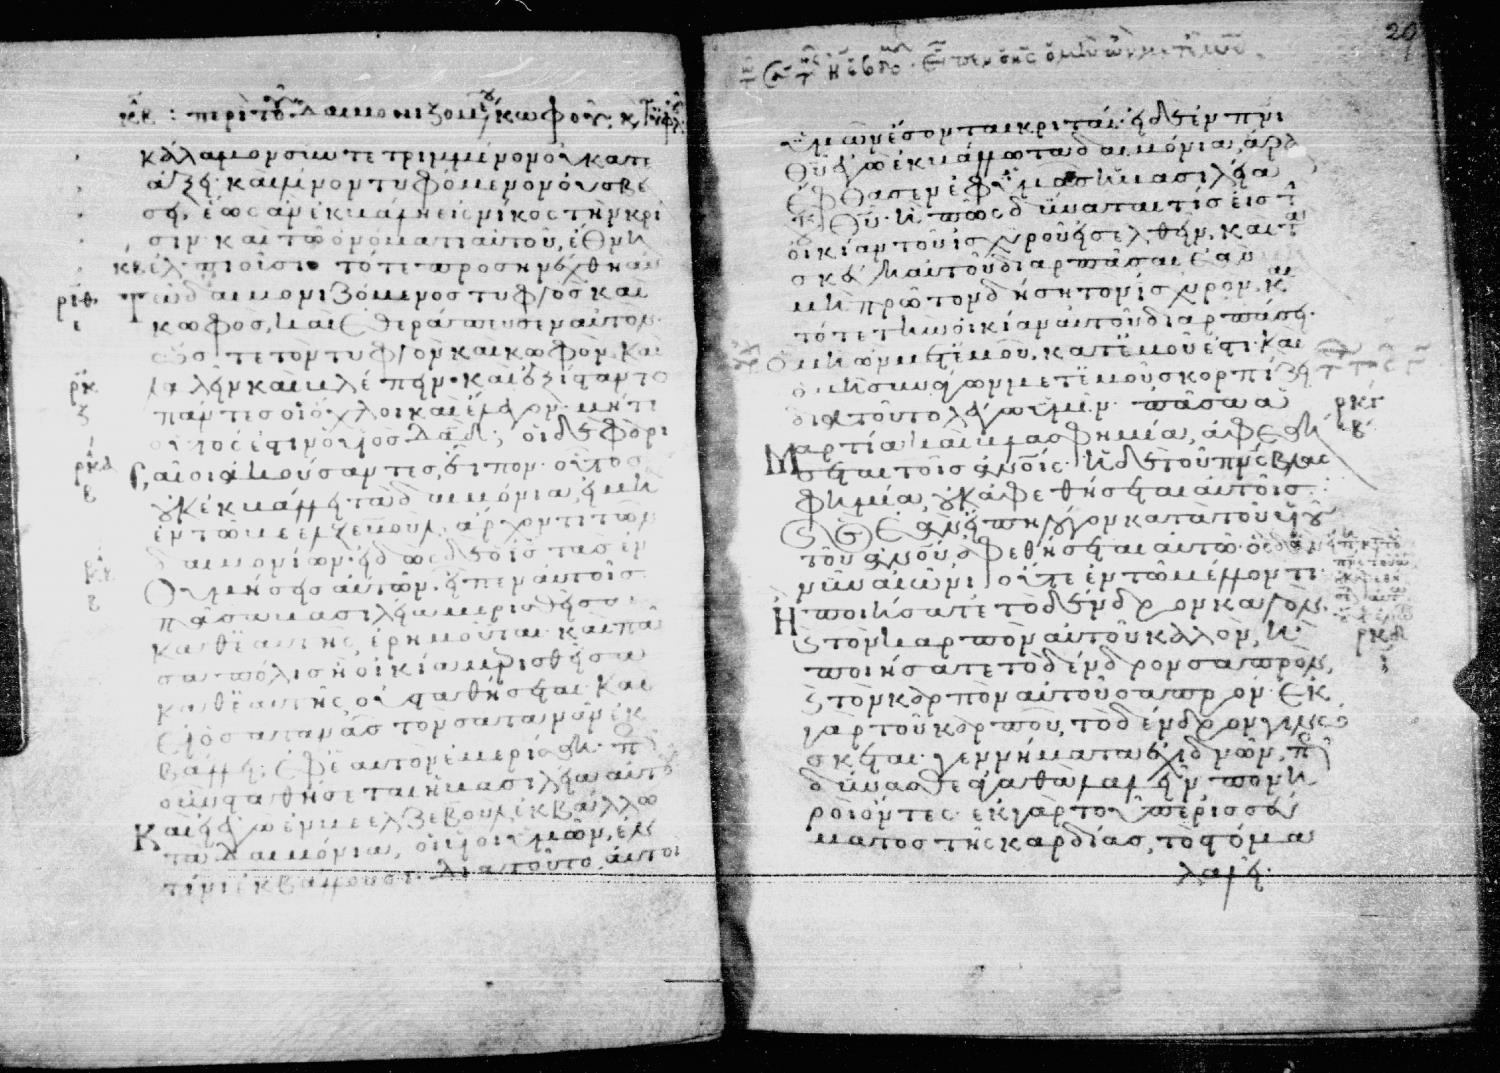 κβ : περὶ τοῦ δαιμονιζομένου κωφοῦ κ τυφλοῦ
κάλαμον συντετριμμένον οὐ κατε
άξει· καὶ λίνον τυφόμενον οὐ σβέ
σει, ἕως ἂν ἐκβάλη εἰς νίκος τὴν κρί
σιν· καὶ τῶ ὀνόματι αὐτοῦ, ἔθνη
κβ ἐλπιοῦσιν τότε προσηνέχθη αὐ
ριθ Τῶ δαιμονιζόμενος τυφλὸς καὶ
ι κωφὸς, καὶ ἐθεράπευσεν αὐτόν·
ὥστε τὸν τυφλὸν καὶ κωφὸν καὶ
ρκ λαλεῖν καὶ βλέπειν· καὶ ἐξίσταντο
ζ πάντες οἱ ὄχλοι καὶ ἔλεγον· μήτι
οὗτός ἐστιν ὁ υἱὸς δαδ; οἱ δὲ φαρι
ρκα σαῖοι ἀκούσαντες, εἶπον· οὗτος
β οὐκ ἐκβάλλει τὰ δαιμόνια, εἰ μὴ
ἐν τῶ βεελζεβοὺλ ἄρχοντι τῶν
δαιμονίων· εἰδὼς δὲ ὁ ις τὰς ἐν
ρκβ
β θυμήσεις αὐτῶν, εἶπεν αὐτοῖς·
πᾶσα βασιλεία μερισθεῖσα
καθ' ἑαυτῆς, ἐρημοῦται· καὶ πᾶ
σα πόλις ἢ οἰκία μερισθεῖσα
καθ' ἑαυτῆς, οὐ σταθήσεται· καὶ
εἰ ὁ σατανᾶς τὸν σατανᾶν ἐκ
βάλλει· ἐφ' ἑαυτὸν ἐμερίσθη· πῶς
οὖν σταθήσεται ἡ βασιλεία αὐτοῦ
Καὶ εἰ ἐγὼ ἐν βεελζεβοὺλ ἐκβάλλω
τὰ δαιμόνια, οἱ υἱοὶ ὑμῶν, ἐν
τίνι ἐκβάλλουσι· διὰ τοῦτο, αὐτοὶ
29
ὑμῶν ἔσονται κριταί· εἰ δὲ ἐν πνι
θυ ἐγὼ ἐκβάλλω τὰ δαιμόνια, ἄρα
ἔφθασεν ἐφ' ὑμᾶς ἡ βασιλεία
τοῦ θυ· ἢ πῶς δύναταί τις εἰς τὴν
οἰκίαν τοῦ ἰσχυροῦ εἰσελθεῖν, καὶ τὰ
σκεύη αὐτοῦ διαρπάσαι ἐὰν
μὴ πρῶτον δήση τὸν ἰσχυρόν, καὶ
τότε τὴν οἰκίαν αὐτοῦ διαρπάσει·
Ὁ μὴ ὢν μετ' ἐμοῦ, κατ' ἐμοῦ ἐστι· καὶ
ὁ μὴ συνάγων μετ' ἐμοῦ σκορπίζει·
διὰ τοῦτο λέγω ὑμῖν· πᾶσα ἁ
ρκγ
β
μαρτία καὶ βλασφημία, ἀφεθή
σεται τοῖς ἀνοις· ἡ δὲ τοῦ πνς βλασ
φημία, οὐκ ἀφεθήσεται αὐτοῖς·
ὃς ἐὰν εἴπη λόγον κατὰ τοῦ υἱοῦ
τοῦ ἀνου ἀφεθήσεται αὐτῶ· ὃς δ' ἂν
νῦν αἰῶνι οὔτε ἐν τῶ μέλλοντι·
Ἢ ποιήσατε τὸ δένδρον καλὸν,
ρκδ
ε
καὶ τὸν καρπὸν αὐτοῦ καλὸν, ἢ
ποιήσατε τὸ δένδρον σαπρὸν,
καὶ τὸν καρπὸν αὐτοῦ σαπρόν· ἐκ
γὰρ τοῦ καρποῦ, τὸ δένδρον γινώ
σκεται· γεννήματα ἐχιδνῶν, πῶς
δύνασθε ἀγαθὰ λαλεῖν πονη
ροὶ ὄντες· ἐκ γὰρ τοῦ περισσεύ
ματος τῆς καρδίας, τὸ στόμα
λαλεῖ·